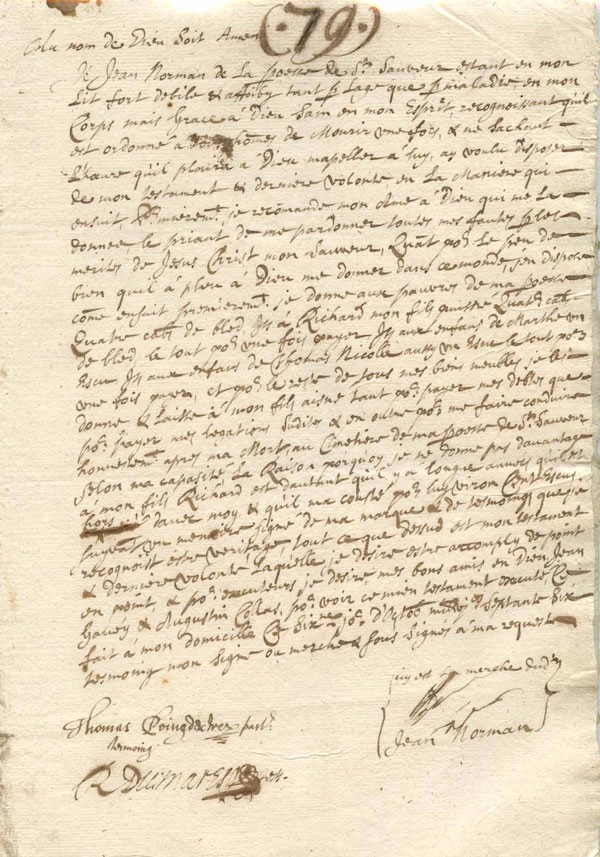 (79)
Au nom de Dieu Soit Amen
Je Jean Norman de La poesse de St Sauveur estant en mon
Lit fort debile & affoiby tant p Lage que p maladie, en mon
Corps mais Grace à Dieu Sain en mon Esprit, recognoissant quil
est ordonné à hoḿes de Mourir une fois, & ne Sachant
Lheure quil plaira à Dieu mapeller à luy, ay voulu disposer
de mon testament & derniere volonte en La Maniere qui
ensuit, je recoḿande mon Ame à Dieu qui me la
donnee le priant de me pardonner toutes mes fautes p les
merites de Jesus Christ mon Sauveur, Quãt po^r Le peu de
bien quil à pleu à Dieu me donner dans ce monde, jen dispose
coḿe ensuit premierem^t je donne aux pauvres de ma poesse
Quatre cab^s de bled, It à Richard mon fils puisne Quatr cab^s
de bled, le tout po^r une fois payer It aux enfans de Marthe un
Escu It aux enfans de Thomas Nicolle aussy un Escu le tout po^r
une fois payer, et po^r le reste de tous mes biens meubles je les
donne & laisse à mon fils aisne tant po^r payer mes debtes que
po^r payer mes legations Sudites & en outre po^r me faire conduire
honnestem^t apres ma Mort, au Cimetiere de ma poesse de S^t Sauveur
Selon ma capasité, La Raison porquoy je ne donne pas davantage
à mon fils Richard est dautant quil y a longue annees quil est
hors daver moy & quil ma cousté po^r luy viron Cent Escus
Suyvãt un memoire signé de ma marque & de tesmoings que je
recognois estre veritage, tout ce que dessus est mon testament
& derniere volonte Laquelle je desire estre accomply de point
en point, & po^r executeurs je desire mes bons amis en Dieu Jean
Hacey & Augustin Collas, po^r voir ce mien testament executé
fait à mon domicille Ce Six^me jo^r d'Octob Septante Six
tesmoing mon Signe ou merche & sous signés à ma requeste
merche dud^t
Jean Norman
Thomas Poingdextre
termoing